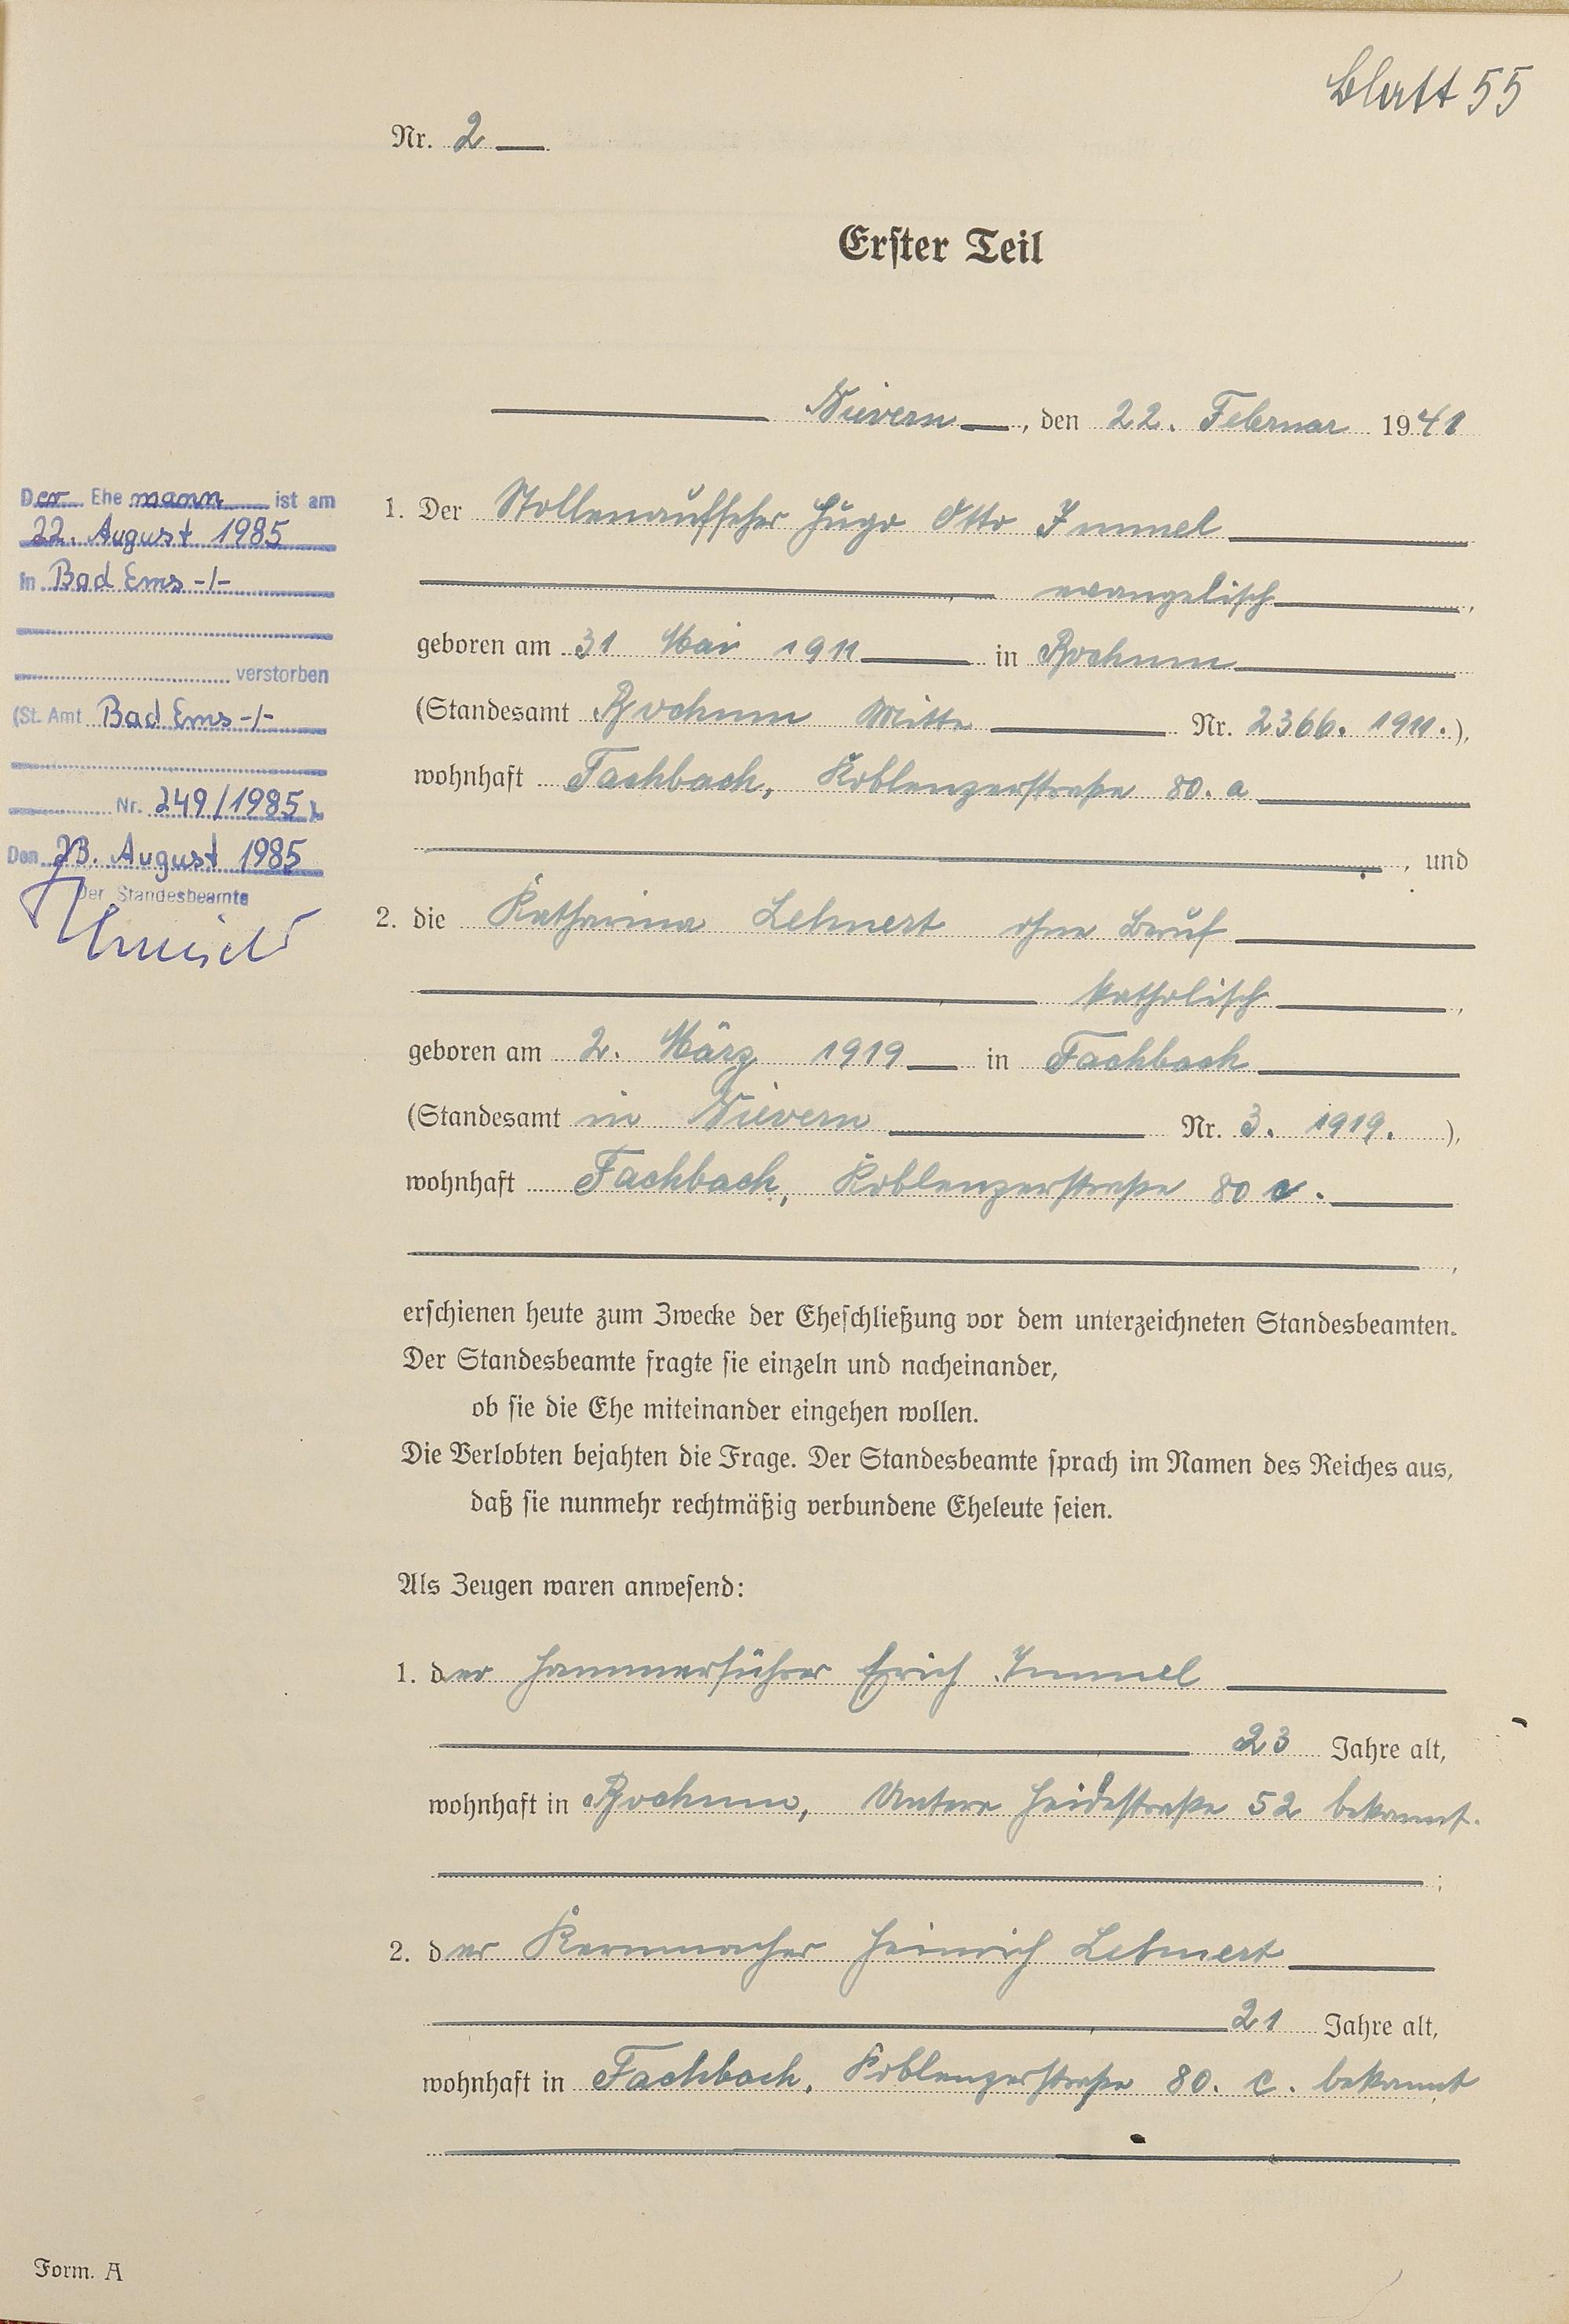 Blatt 55
Nr. 2
Erster Teil
Nievern, den 22. Februar 1941
Der Ehemann ist am
22. August 1985
in Bad Ems -/-
verstorben
(St. Amt Bad Ems -/-
Nr. 249/1985).
Den 23. August 1985
Der Standesbeamte
1. Der Stollenaufseher Hugo Otto Immel
evangelisch,
geboren am 31 Mai 1911 in Bochum
(Standesamt Bochum Mitte Nr. 2366. 1911.),
wohnhaft Fachbach, Koblenzerstraße 80. a
, und
2. die Katharina Lehnert ohne Beruf
katholisch,
geboren am 2. März 1919 in Fachbach
(Standesamt in Nievern Nr. 3. 1919. ),
wohnhaft Fachbach, Koblenzerstraße 80 c.
,
erschienen heute zum Zwecke der Eheschließung vor dem unterzeichneten Standesbeamten.
Der Standesbeamte fragte sie einzeln und nacheinander,
ob sie die Ehe miteinander eingehen wollen.
Die Verlobten bejahten die Frage. Der Standesbeamte sprach im Namen des Reiches aus,
daß sie nunmehr rechtmäßig verbundene Eheleute seien.
Als Zeugen waren anwesend:
1. der Hammerführer Erich Immel
23 Jahre alt,
wohnhaft in Bochum, Untere Heidestraße 52 bekannt.
;
2. der Kernmacher Heinrich Lehnert
21 Jahre alt,
wohnhaft in Fachbach, Koblenzerstraße 80. c. bekannt
Form. A